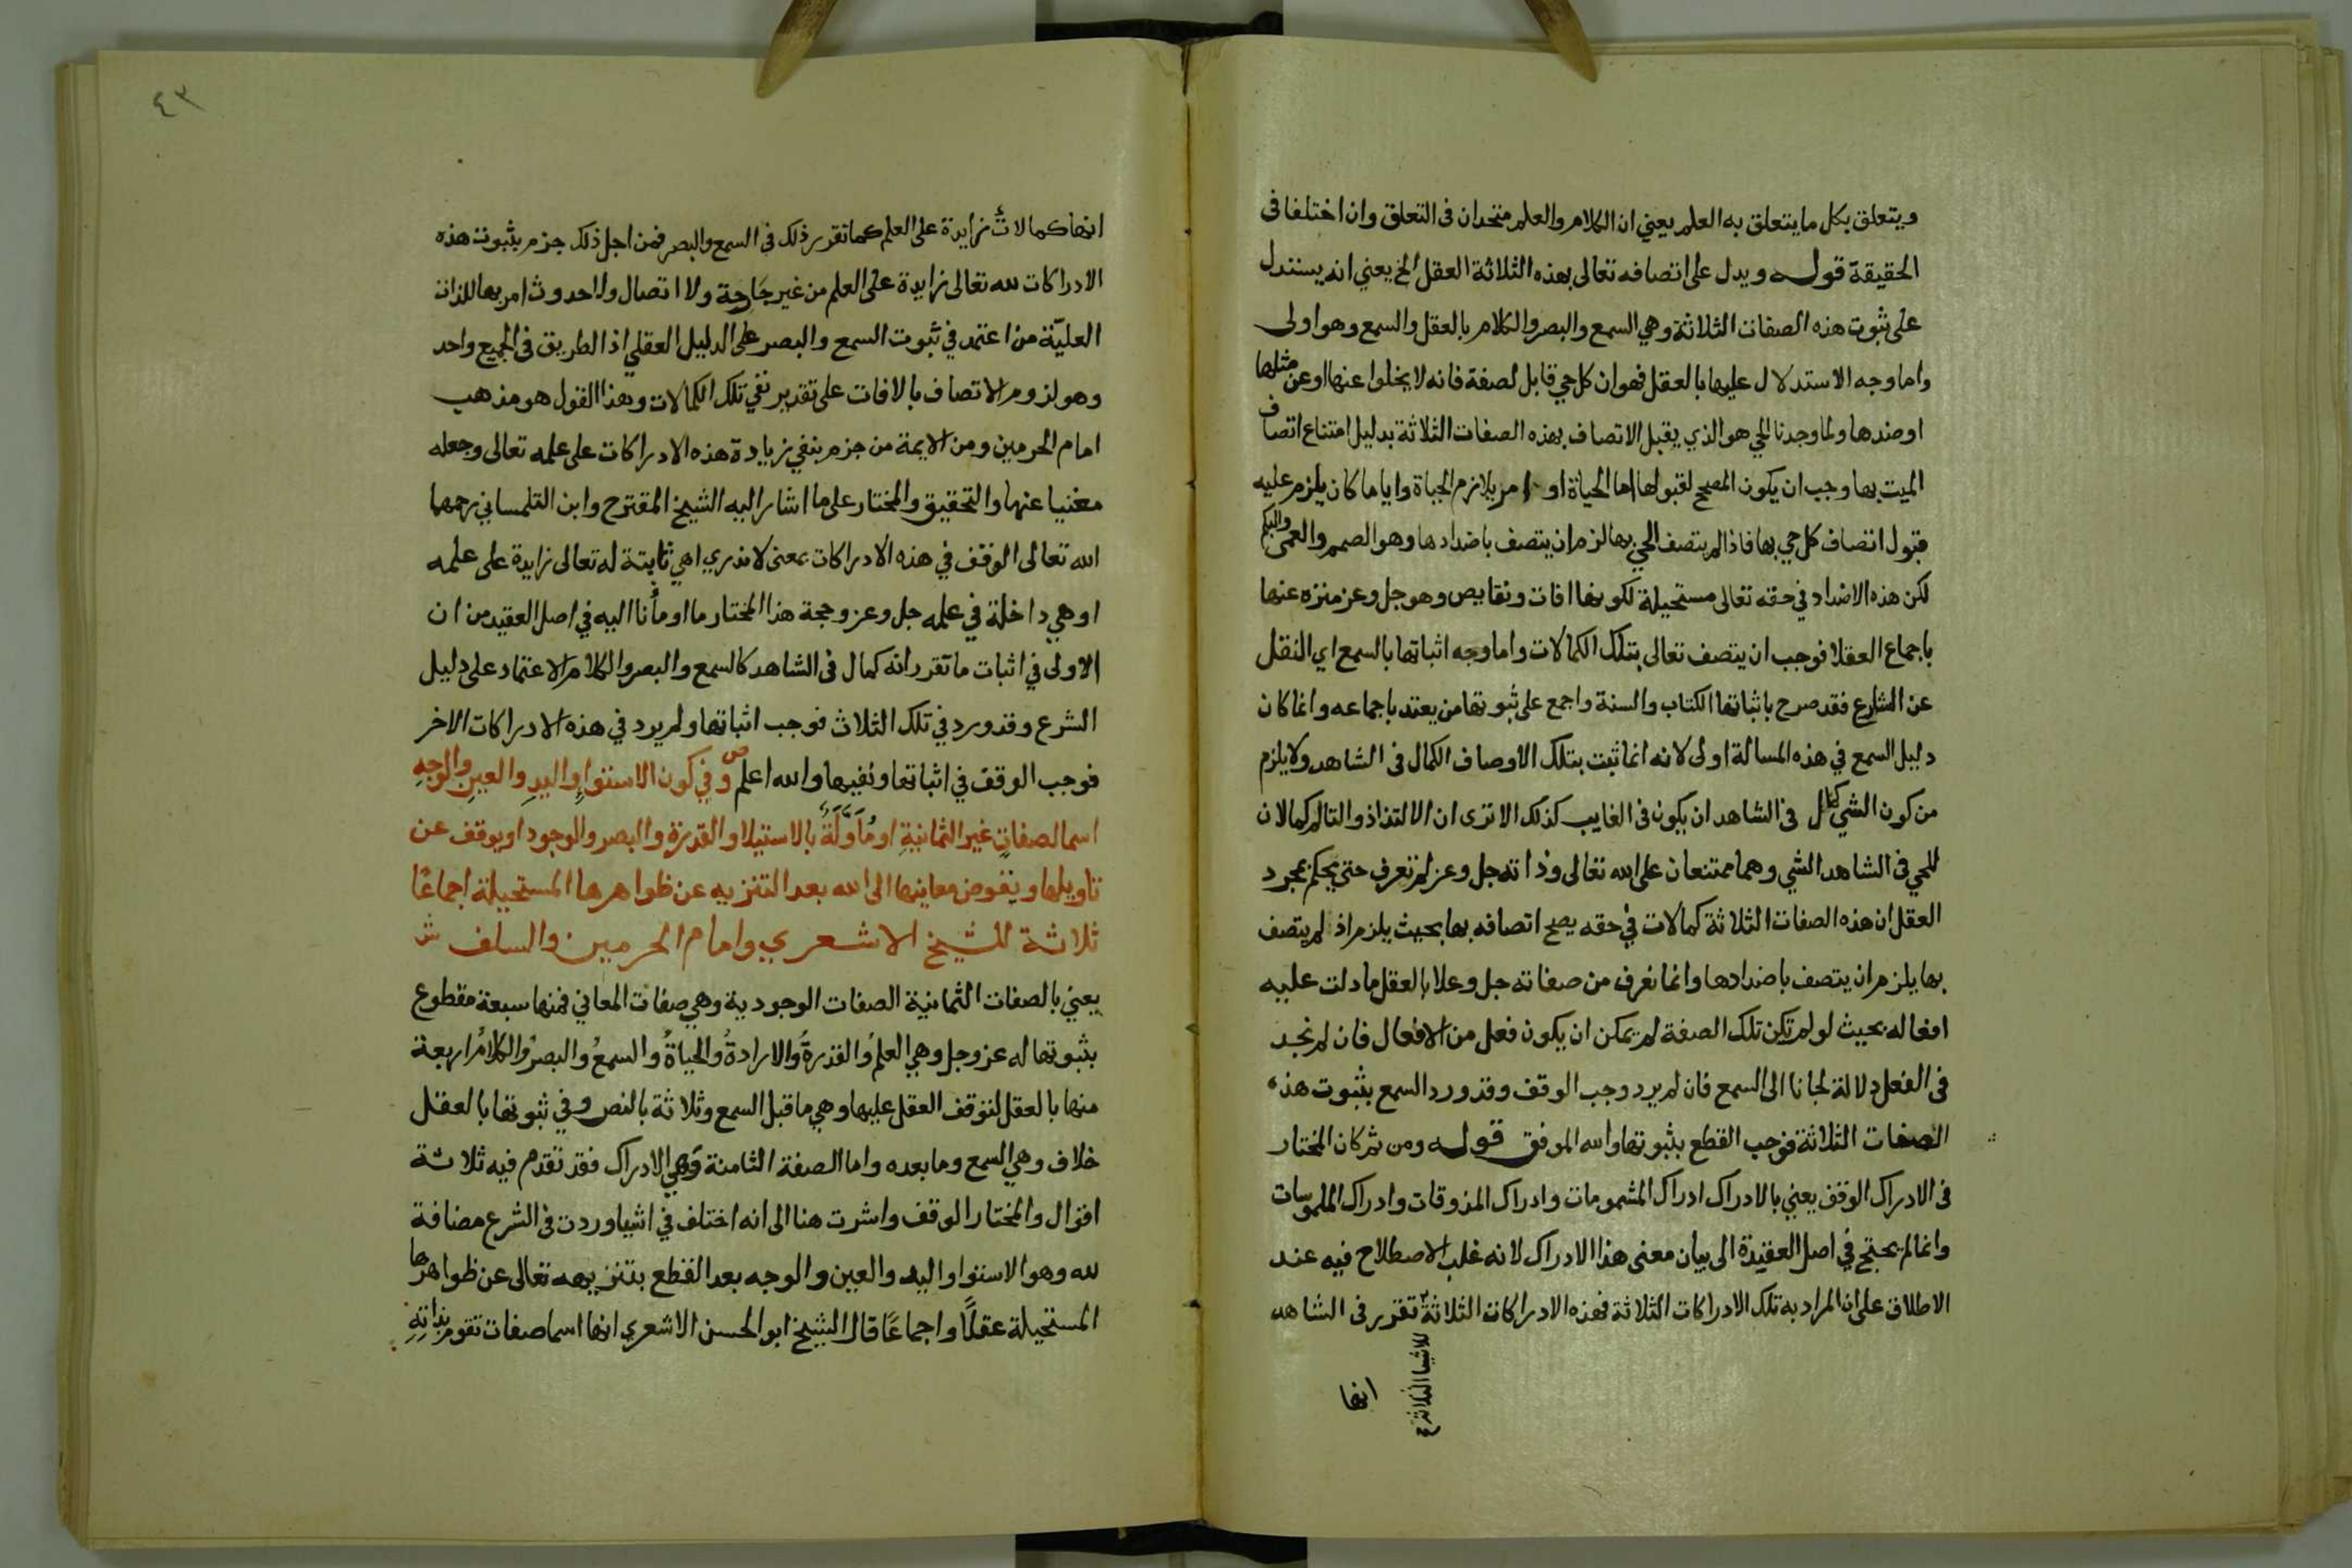 ويتعلق بكل ما يتعلق به العلم يعني ان الكلام والعلم متحدان فى التعلق وان اختلفا فى
الحقيقة قوله ويدل على اتصافه تعالى بهذه الثلاثة العقل الخ يعني انه يستدل
على ثبوت هذه الصفات الثلاثة وهي السمع والبصر والكلام بالعقل والسمع وهو اولى
واما وجه الاستدلال عليها بالعقل فهو ان كل حي قابل لصفة فانه لا يخلوا عنها او عن مثلها
او ضدها ولما وجدنا الحي هو الذي يقبل الاتصاف بهذه الصفات الثلاثة بدليل امتناع اتصاف
الميت بها وجب ان يكون المصحح لقبولها اما الحياة او امر يلازم الحياة وايا ما كان يلزم عليه
قبول اتصاف كل حي بها فاذا لم يتصف الحي بها لزم ان يتصف باضدادها وهو الصمم والعمى والبكم
لكن هذه الاضداد في حقه تعالى مستحيلة لكونها افات ونقايص وهو جل وعز منزه عنها
باجماع العقلا فوجب ان يتصف تعالى بتلك الكمالات واما وجه اثباتها بالسمع اي النقل
عن الشارع فقد صرح باثباتها الكتاب والسنة واجمع على ثبوتها من يعتد باجماعه وانما كان
دليل السمع في هذه المسالة اولى لانه انما ثبت بتلك الاوصاف الكمال فى الشاهد ولا يلزم
من كون الشي كمال فى الشاهد ان يكون فى الغايب كذلك الا ترى ان الالتذاذ والتالم كمالان
للحي فى الشاهد الشي وهما ممتنعان على الله تعالى وذاته جل وعز لم تعرف حتى يحكم بمجرد
العقل ان هذه الصفات الثلاثة كمالات في حقه يصح اتصافه بها بحيث يلزم اذ لم يتصف
بها يلزم ان يتصف باضدادها وانما نعرف من صفاته جل وعلا بالعقل ما دلت عليه
افعاله بحيث لو لم تكن تلك الصفة لم يمكن ان يكون فعل من الافعال فان لم نجد
فى الفعل دلالة لجانا الى السمع فان لم يرد وجب الوقف وقد ورد السمع بثبوت هذه
الصفات الثلاثة فوجب القطع بثبوتها والله الموفق قوله ومن ثم كان المختار
فى الادراك الوقف يعني بالادراك ادراك المشمومات وادراك المذوقات وادراك الملموسات
وانما لم يحتج في اصل العقيدة الى بيان معنى هذا الادراك لانه غلب الاصطلاح فيه عند
الاطلاق على ان المراد به تلك الادراكات الثلاثة فهذه الادراكات الثلاثة تقرر فى الشاهد
للاشيا الثلاثة
انها
٤٣
انها كمالات زايدة على العلم كما تقرر ذلك في السمع والبصر فمن اجل ذلك جزم بثبوت هذه
الادراكات لله تعالى زايدة على العلم من غير جارحة ولا اتصال ولا حدوث امر بها للذات
العليّة من اعتمد في ثبوت السمع والبصر على الدليل العقلي اذ الطريق فى الجميع واحد
وهو لزوم الاتصاف بالافات على تقدير نفي تلك الكمالات وهذا القول هو مذهب
امام الحرمين ومن الايمة من جزم بنفي زيادة هذه الادراكات على علمه تعالى وجعله
مغنيا عنها والتحقيق والمختار على ما اشار اليه الشيخ المقترح وابن التلمساني رحمهما
الله تعالى الوقف في هذه الادراكات بمعنى لا ندري اهي ثابتة له تعالى زايدة على علمه
او هي داخلة في علمه جل وعز وحجة هذا المختار ما اومأنا اليه في اصل العقيد من ان
الاولى في اثبات ما تقرر انه كمال فى الشاهد كالسمع والبصر والكلام الاعتماد على دليل
الشرع وقد ورد في تلك الثلاث فوجب اثباتها ولم يرد في هذه الادراكات الاخر
فوجب الوقف في اثباتها ونفيها والله اعلم ص وفي كون الاستواءِ واليدِ والعينِ والوجهِ
اسما لصفاتٍ غير الثمانيةِ او مُأَوَّلَةً بالاستيلا والقدرة والبصر والوجود او يوقف عن
تاويلها ويفوض معانيها الى الله بعد التنزيه عن ظواهرها المستحيلة اجماعًا
ثلاثة للشيخ الاشعري وامام الحرمين والسلف ش
يعني بالصفات الثمانية الصفات الوجودية وهي صفات المعاني فمنها سبعة مقطوع
بثبوتها له عز وجل وهي العلمُ والقدرةُ والارادةُ والحياةُ والسمعُ والبصرُ والكلامُ اربعة
منها بالعقل لتوقف العقل عليها وهي ما قبل السمع وثلاثة بالنص وفي ثبوتها بالعقل
خلاف وهي السمع وما بعده واما الصفة الثامنة وهي الادراك فقد تقدم فيه ثلاثة
اقوال والمختار الوقف واشرت هنا الى انه اختلف في اشيا وردت فى الشرع مضافة
لله وهو الاستوا واليد والعين والوجه بعد القطع بتنزيهه تعالى عن ظواهرها
المستحيلة عقلًا واجماعًا قال الشيخ ابو الحسن الاشعري انها اسما صفات تقوم بذاتِهِ